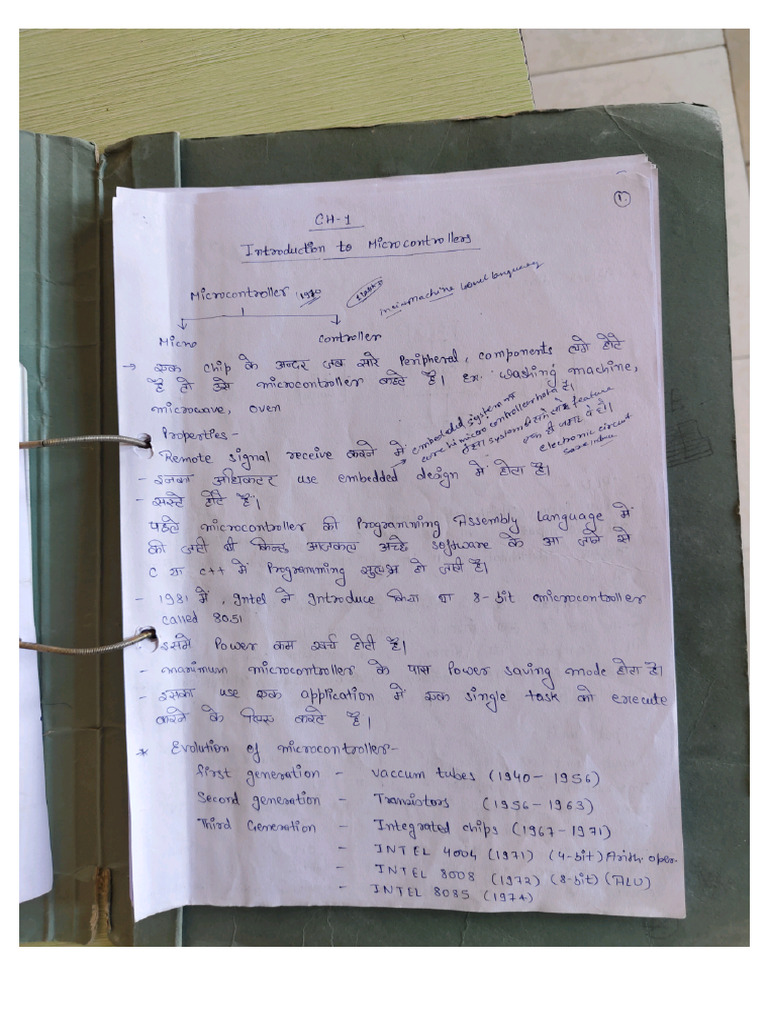 1.
CH-1
Introduction to Microcontrollers
Microcontroller
Machine level language
Micro Controller
→ एक chip के अन्दर जब सारे Peripheral, components लगे होते
है तो उसे microcontroller कहते है। Ex. Washing machine,
microwave, oven
Properties-
Remote signal receive करने में
embedded system का
core hi micro controller hota है।
feature
electronic circuit
- इनका अधिकटर use embedded design में होता है।
- सस्ते होते हैं।
पहले microcontroller की Programming Assembly Language में
की जाती थी किन्तु आजकल अच्छे software के आ जाने से
C या C++ में Programming सुलभ हो जाती है।
- 1981 में, Intel ने Introduce किया था 8-bit microcontroller
called 8051
- इसमें Power कम खर्च होती है।
- maximum microcontroller के पास Power saving mode होता है।
- इसका use एक application में एक single task को execute
करने के लिए करते है।
* Evolution of microcontroller-
first generation - vaccum tubes (1940-1956)
Second generation - Transistors (1956-1963)
Third Generation - Integrated chips (1967-1971)
- INTEL 4004 (1971) (4-bit) Arith. oper.
- INTEL 8008 (1972) (8-bit) (ALU)
- INTEL 8085 (1974)